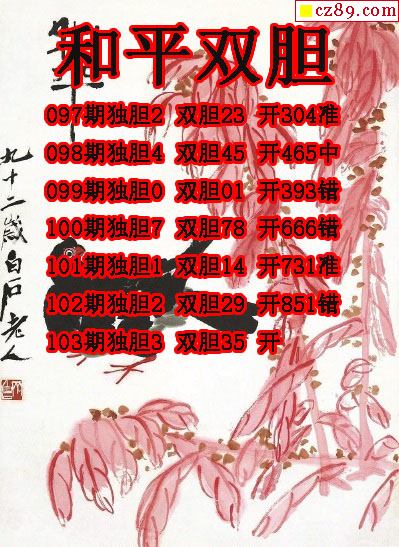 cz89.com
和平双胆
097期独胆2 双胆23 开304准
098期独胆4 双胆45 开465中
099期独胆0 双胆01 开393错
100期独胆7 双胆78 开666错
101期独胆1 双胆14 开731准
102期独胆2 双胆29 开851错
103期独胆3 双胆35 开
九十二岁白石老人